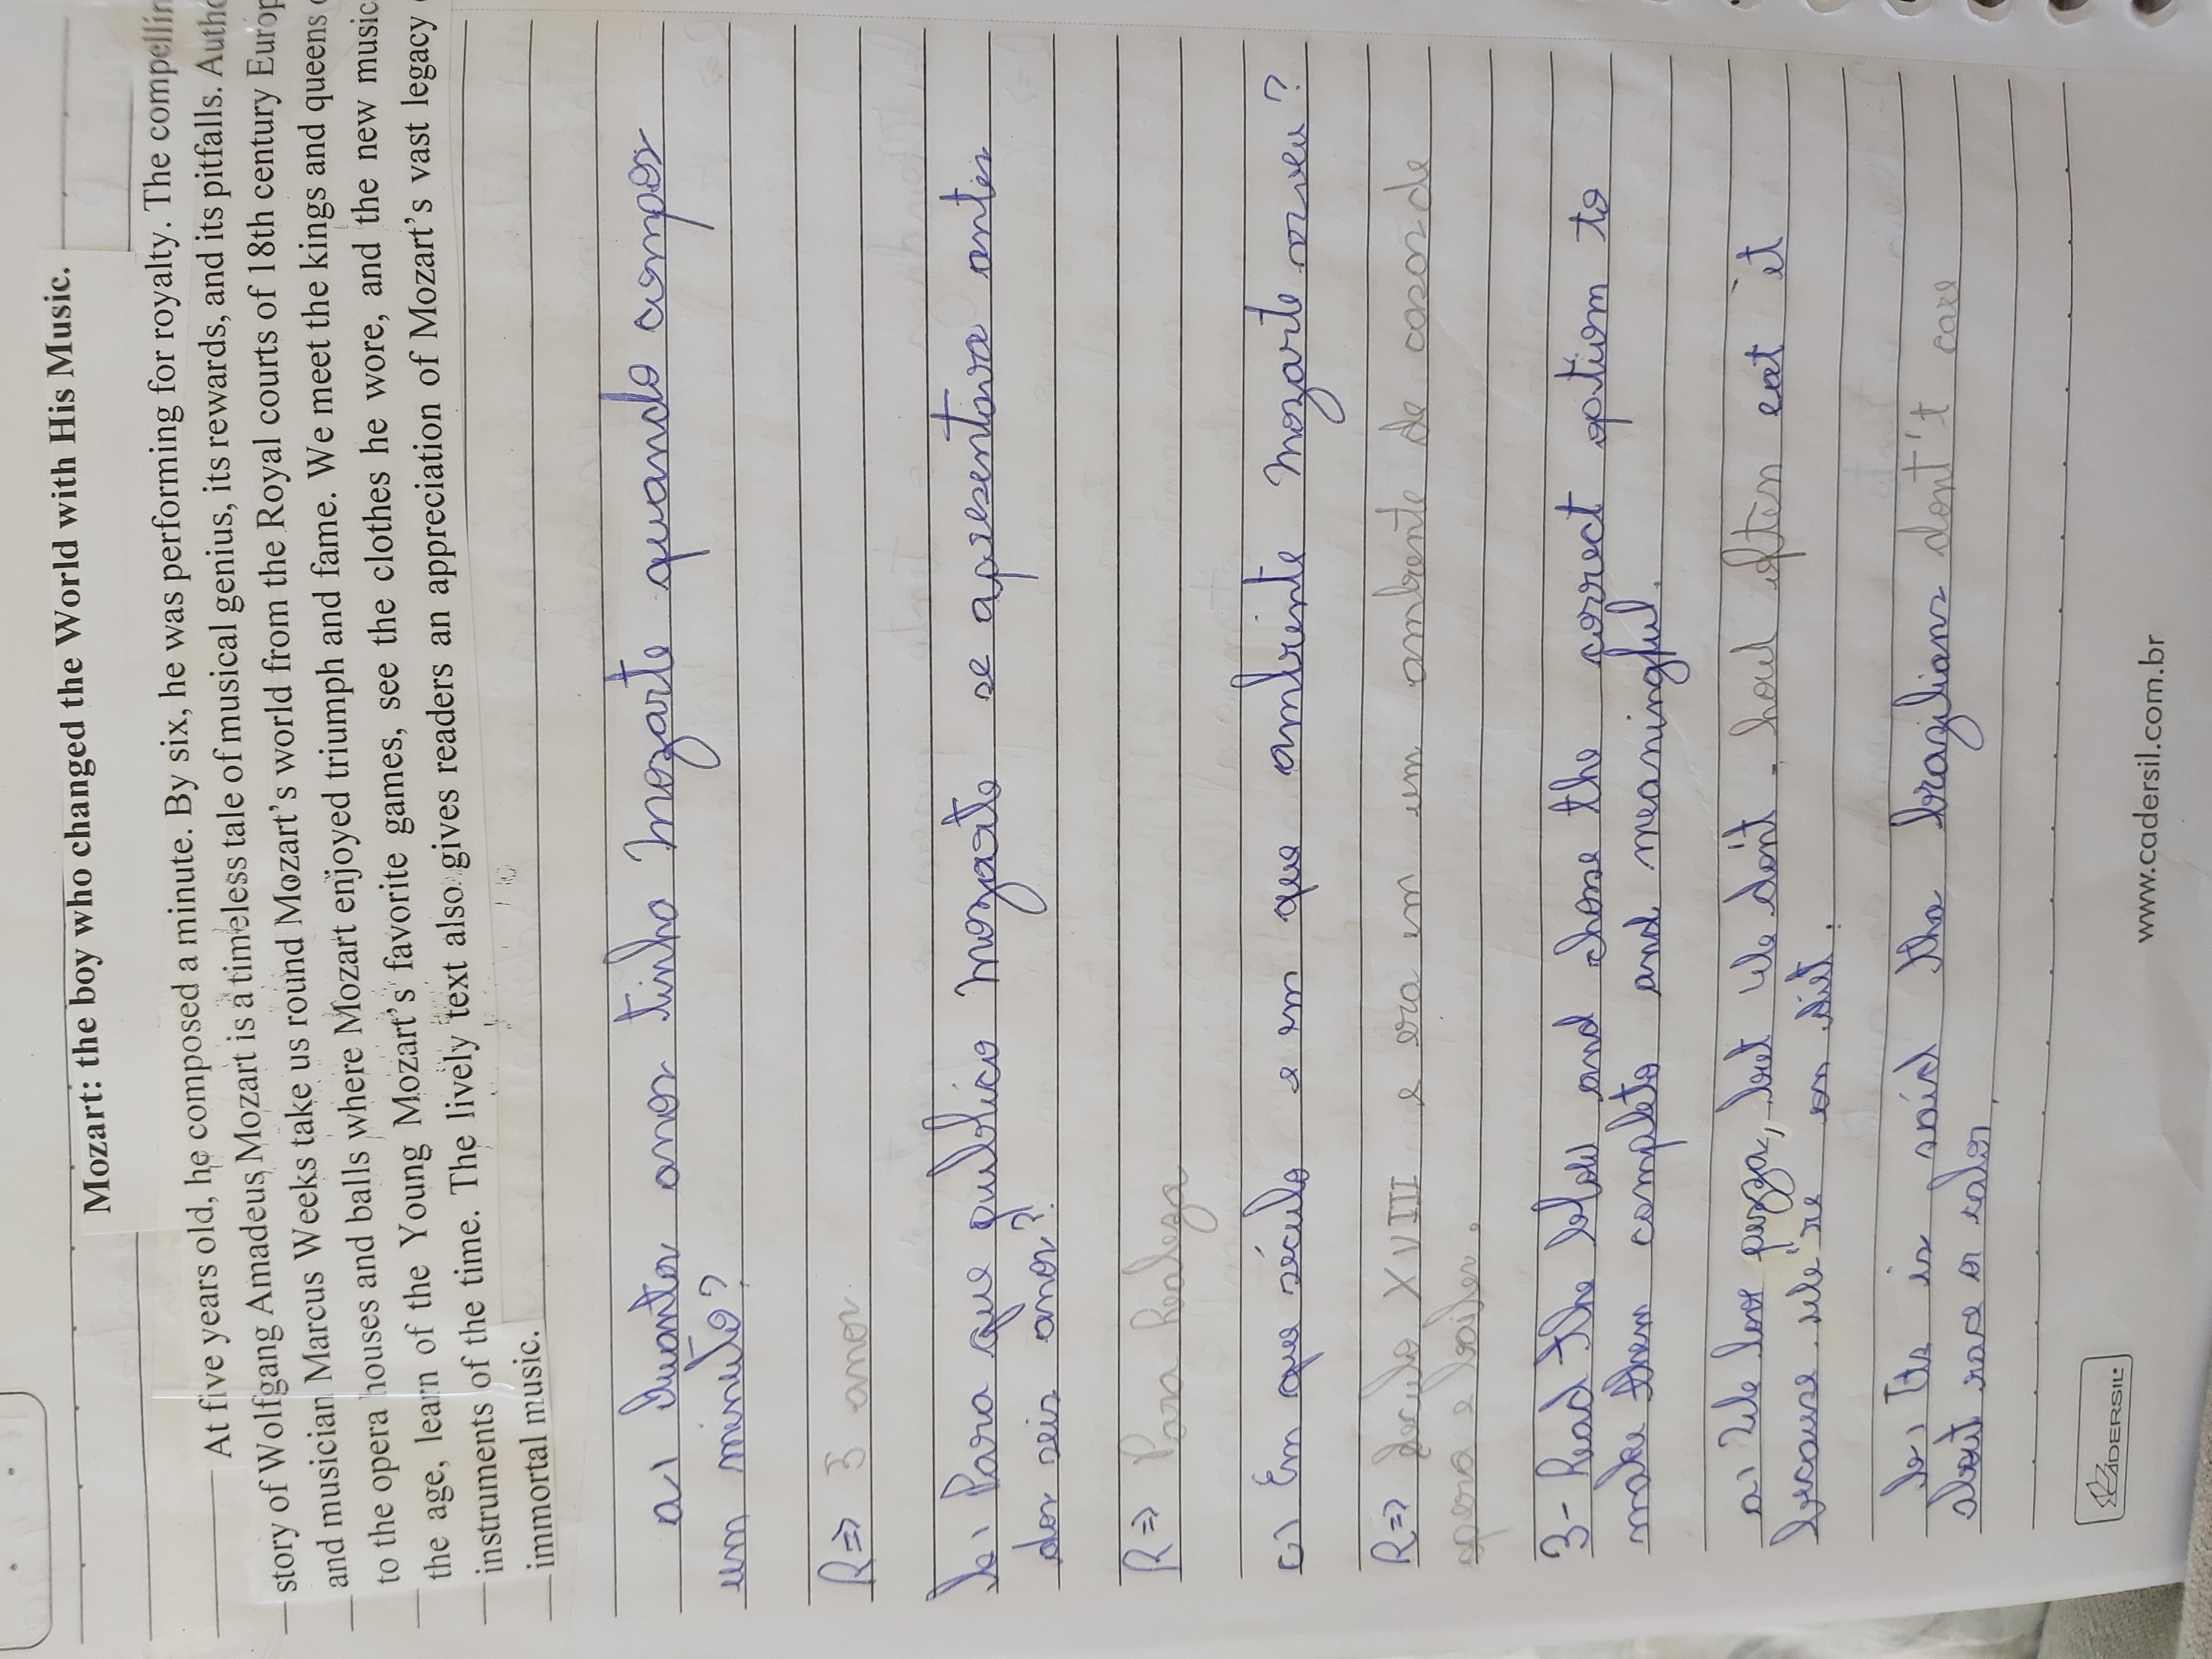 Mozart: the boy who changed the World with His Music.
At five years old, he composed a minute. By six, he was performing for royalty. The compellin
story of Wolfgang Amadeus Mozart is a timeless tale of musical genius, its rewards, and its pitfalls. Autho
and musician Marcus Weeks take us round Mozart's world from the Royal courts of 18th century Europ
to the opera houses and balls where Mozart enjoyed triumph and fame. We meet the kings and queens
the age, learn of the Young Mozart's favorite games, see the clothes he wore, and the new music
instruments of the time. The lively text also gives readers an appreciation of Mozart's vast legacy
immortal music.
a) Quantos anos tinha Mozarte quando compos
um minuto?
R=> 5 anos
b) Para que publico Mozarte se apresentava antes
dos seis anos?
R=> Para Realeza
c) Em que século e em que ambiente Mozarte viveu?
R=> Seculo XVIII e era em um ambiente de casas de
opera e bailes.
3- Read the blow and chose the correct option to
make them complete and meaningful.
a) We love pizza, but we don't how often eat it
because we're on diet.
b) Its is said tha brazilians dont't care
about race or color.
CADERSIL
www.cadersil.com.br